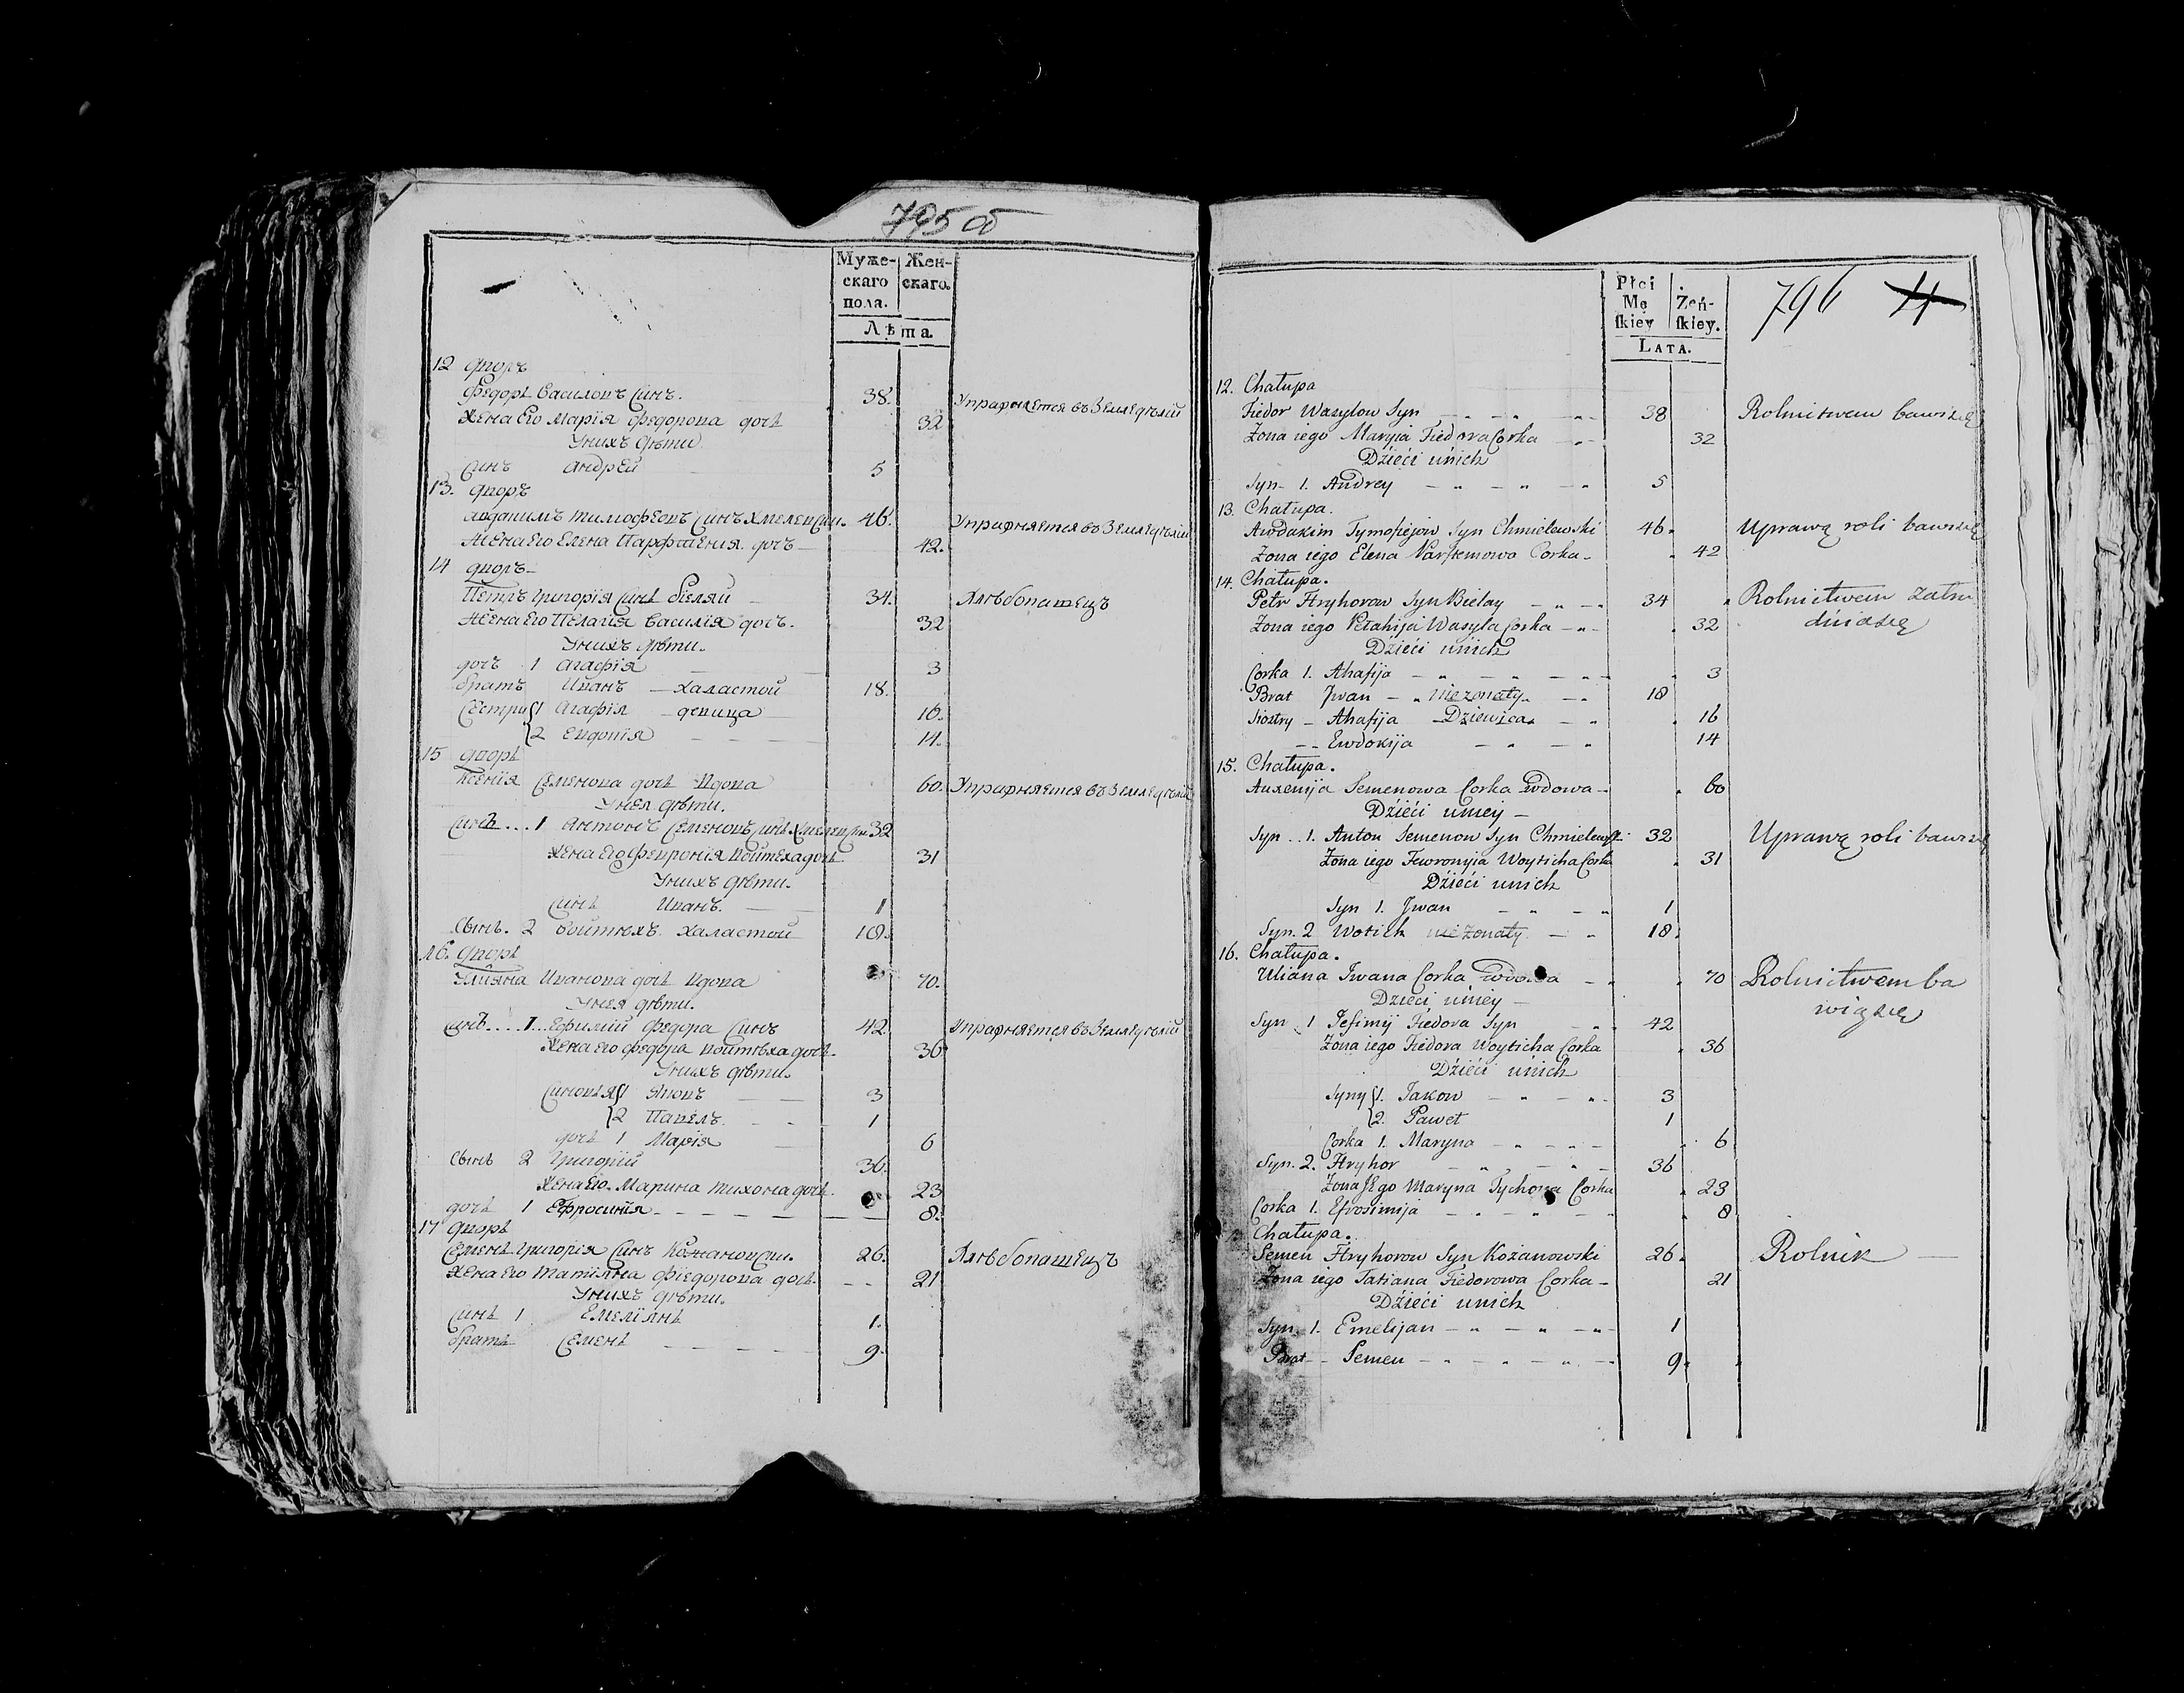 795 об
Муже-
скаго
пола.
Жен-
скаго.
Лѣта.
12 дворъ
Федоръ Василовъ Синъ. 38. Упражняется въ Земледѣлій
Жена Его Марія Федорова дочь 32
Унихъ дѣти
Синъ Андрей 5
13. дворъ
Авдакимъ Тимофеевъ Синъ Хмелевски. 46. Упражняется въ Земледѣлій
Жена Его Елена дочъ 42.
14 дворъ
Петръ Григорія Синъ Бѣляй 34. Хлѣбопашецъ
Жена Его Пелагія Василія дочъ. 32
Унихъ дѣти.
дочъ 1 Агафія 3
братъ Иванъ — халастой 18.
Сестри {1 Агафія — девица 16.
{2 Евдокія 14.
15 дворъ
Ксенія Семенова дочъ Вдова 60. Упражняется въ Земледѣлій
Унея дѣти.
Синъ...1 Антонъ Семеновъ Синъ Хмелевски 32
Жена Его Февронія Войтеха дочъ 31
Унихъ дѣти.
Синъ Иванъ. 1
Сынъ. 2 Войтехъ халастой 18.
16. дворъ
Уляяна Иванова дочъ Вдова 70.
Унея дѣти.
Синъ....1...Ефимій Федора Синъ 42. Упражняется въ Земледѣлій
Жена Его Федора Войтѣха дочъ. 36
Унихъ дѣти.
Синовья {1 Яковъ 3
{2 Павелъ 1
дочъ 1 Марія 6
Сынъ 2 Григорій 36.
Жена Его Марина Тихона дочъ. 23
дочъ 1 Ефросинія 8.
17 дворъ
Семенъ Григорія Синъ Кожановски. 26. Хлѣбопашецъ
Жена Его Татіяна Фіедорова дочъ. 21
Унихъ дѣти.
Синъ 1 Емеліянъ 1.
братъ Семенъ 9.
Płci
Mę
skiey
Żeń-
skiey.
LATA.
796 4
12. Chałupa
Fiedor Wasylow Syn 38 Rolnictwem bawi się
Żona iego Maryia Fiedora Corka 32
Dzieći unich
Syn 1. Andrey 5
13. Chałupa.
Awdakim Tymofiejow Syn Chmielewski 46. Uprawą roli bawi się
Żona iego Elena Corka 42
14. Chałupa.
Petr Hryhorow Syn Bielay 34 Rolnictwem zatru
Żona iego Pelahija Wasyla Corka 32 dnia się
Dzieći unich
Corka 1. Ahafija 3
Brat Jwan niezonaty 18
Siostry Ahafija Dziewica 16
Ewdokija 14
15. Chałupa.
Auxenija Semenowa Corka Wdowa 60
Dzieći uniey
Syn..1. Anton Semenow Syn Chmielewski 32 Uprawą roli bawi się
Żona iego Fewronyia Woyticha Corka 31
Dzieći unich
Syn 1. Jwan 1
Syn. 2 Wotich nieżonaty 18.
16. Chałupa.
Uliana Jwana Corka Wdowa 70 Rolnictwem ba
Dzieći uniey wią się
Syn 1 Jefimij Fiedora Syn 42
Żona iego Fiedora Woyticha Corka 36
Dzieći unich
Syny {1. Jakow 3
{2. Paweł 1
Corka 1. Maryna 6
Syn. 2. Hryhor 36
Żona Jego Maryna Tychona Corka 23
Corka 1. Efrosimija 8
Chałupa.
Semen Hryhorow Syn Kożanowski 26. Rolnik
Żona iego Tatiana Fiedorowa Corka 21
Dzieći unich
Syn. 1. Emelijan 1
Brat Semen 9.